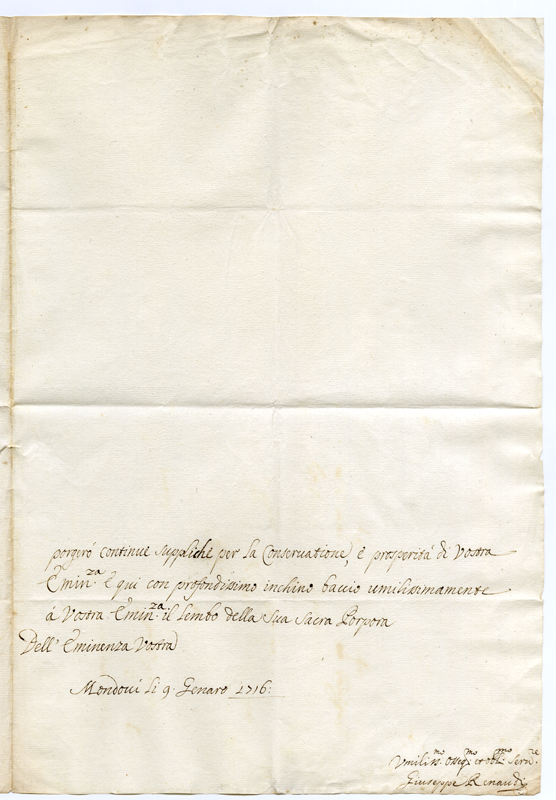 porgerò continue suppliche per la Conservatione, è prosperità di Vostra
Emin.za E qui con profondissimo inchino baccio umilissimamente
à Vostra Emin.za il Lembo della Sua Sacra Porpora
Dell' Eminenza Vostra
Mondovi li 9. Genaro 1716:
Vmiliss.mo osseq.mo et obl.mo Serv.re
Giuseppe Renaudi